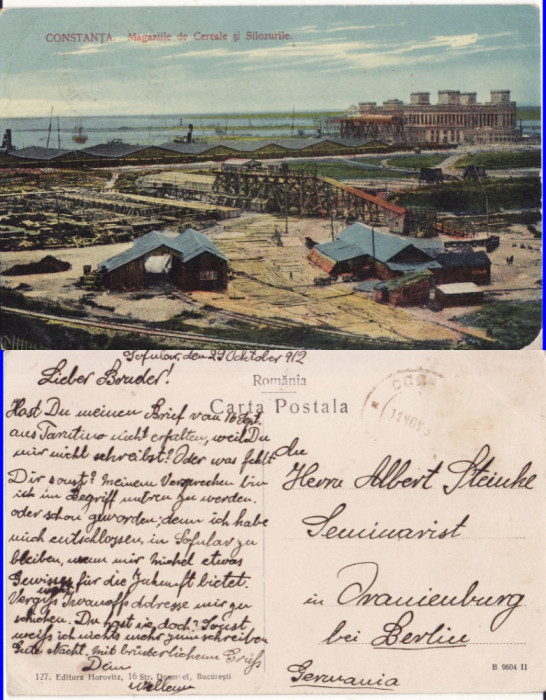 CONSTANȚA. Magaziile de Cereale și Silozurile.
Sofular, den 29 Oktober 912
Lieber Bruder!
Hast Du meinen Brief vom 16 Spt.
aus Tarutino nicht erhalten, weil Du
mir nicht schreibst? Oder was fehlt
Dir sonst? Meinem Versprechen bin
ich im Begriff untreu zu werden.
oder schon geworden; denn ich habe
mich entschlossen, in Sofular zu
bleiben, wenn mir nicht etwas
Gewisses für die Zukunft bietet.
Vergiß Iwanoffs Addresse mir zu
schicken. Du hast sie doch? Sonst
weiß ich nichts mehr zum schreiben
Gute Nacht, mit brüderlichem Gruß
Dein
România
Carta Postala
An
Herrn Albert Steinke
Seminarist
in Oranienburg
bei Berlin
Germania
127. Editura Horovitz, 16 Str. București
B 9604 II